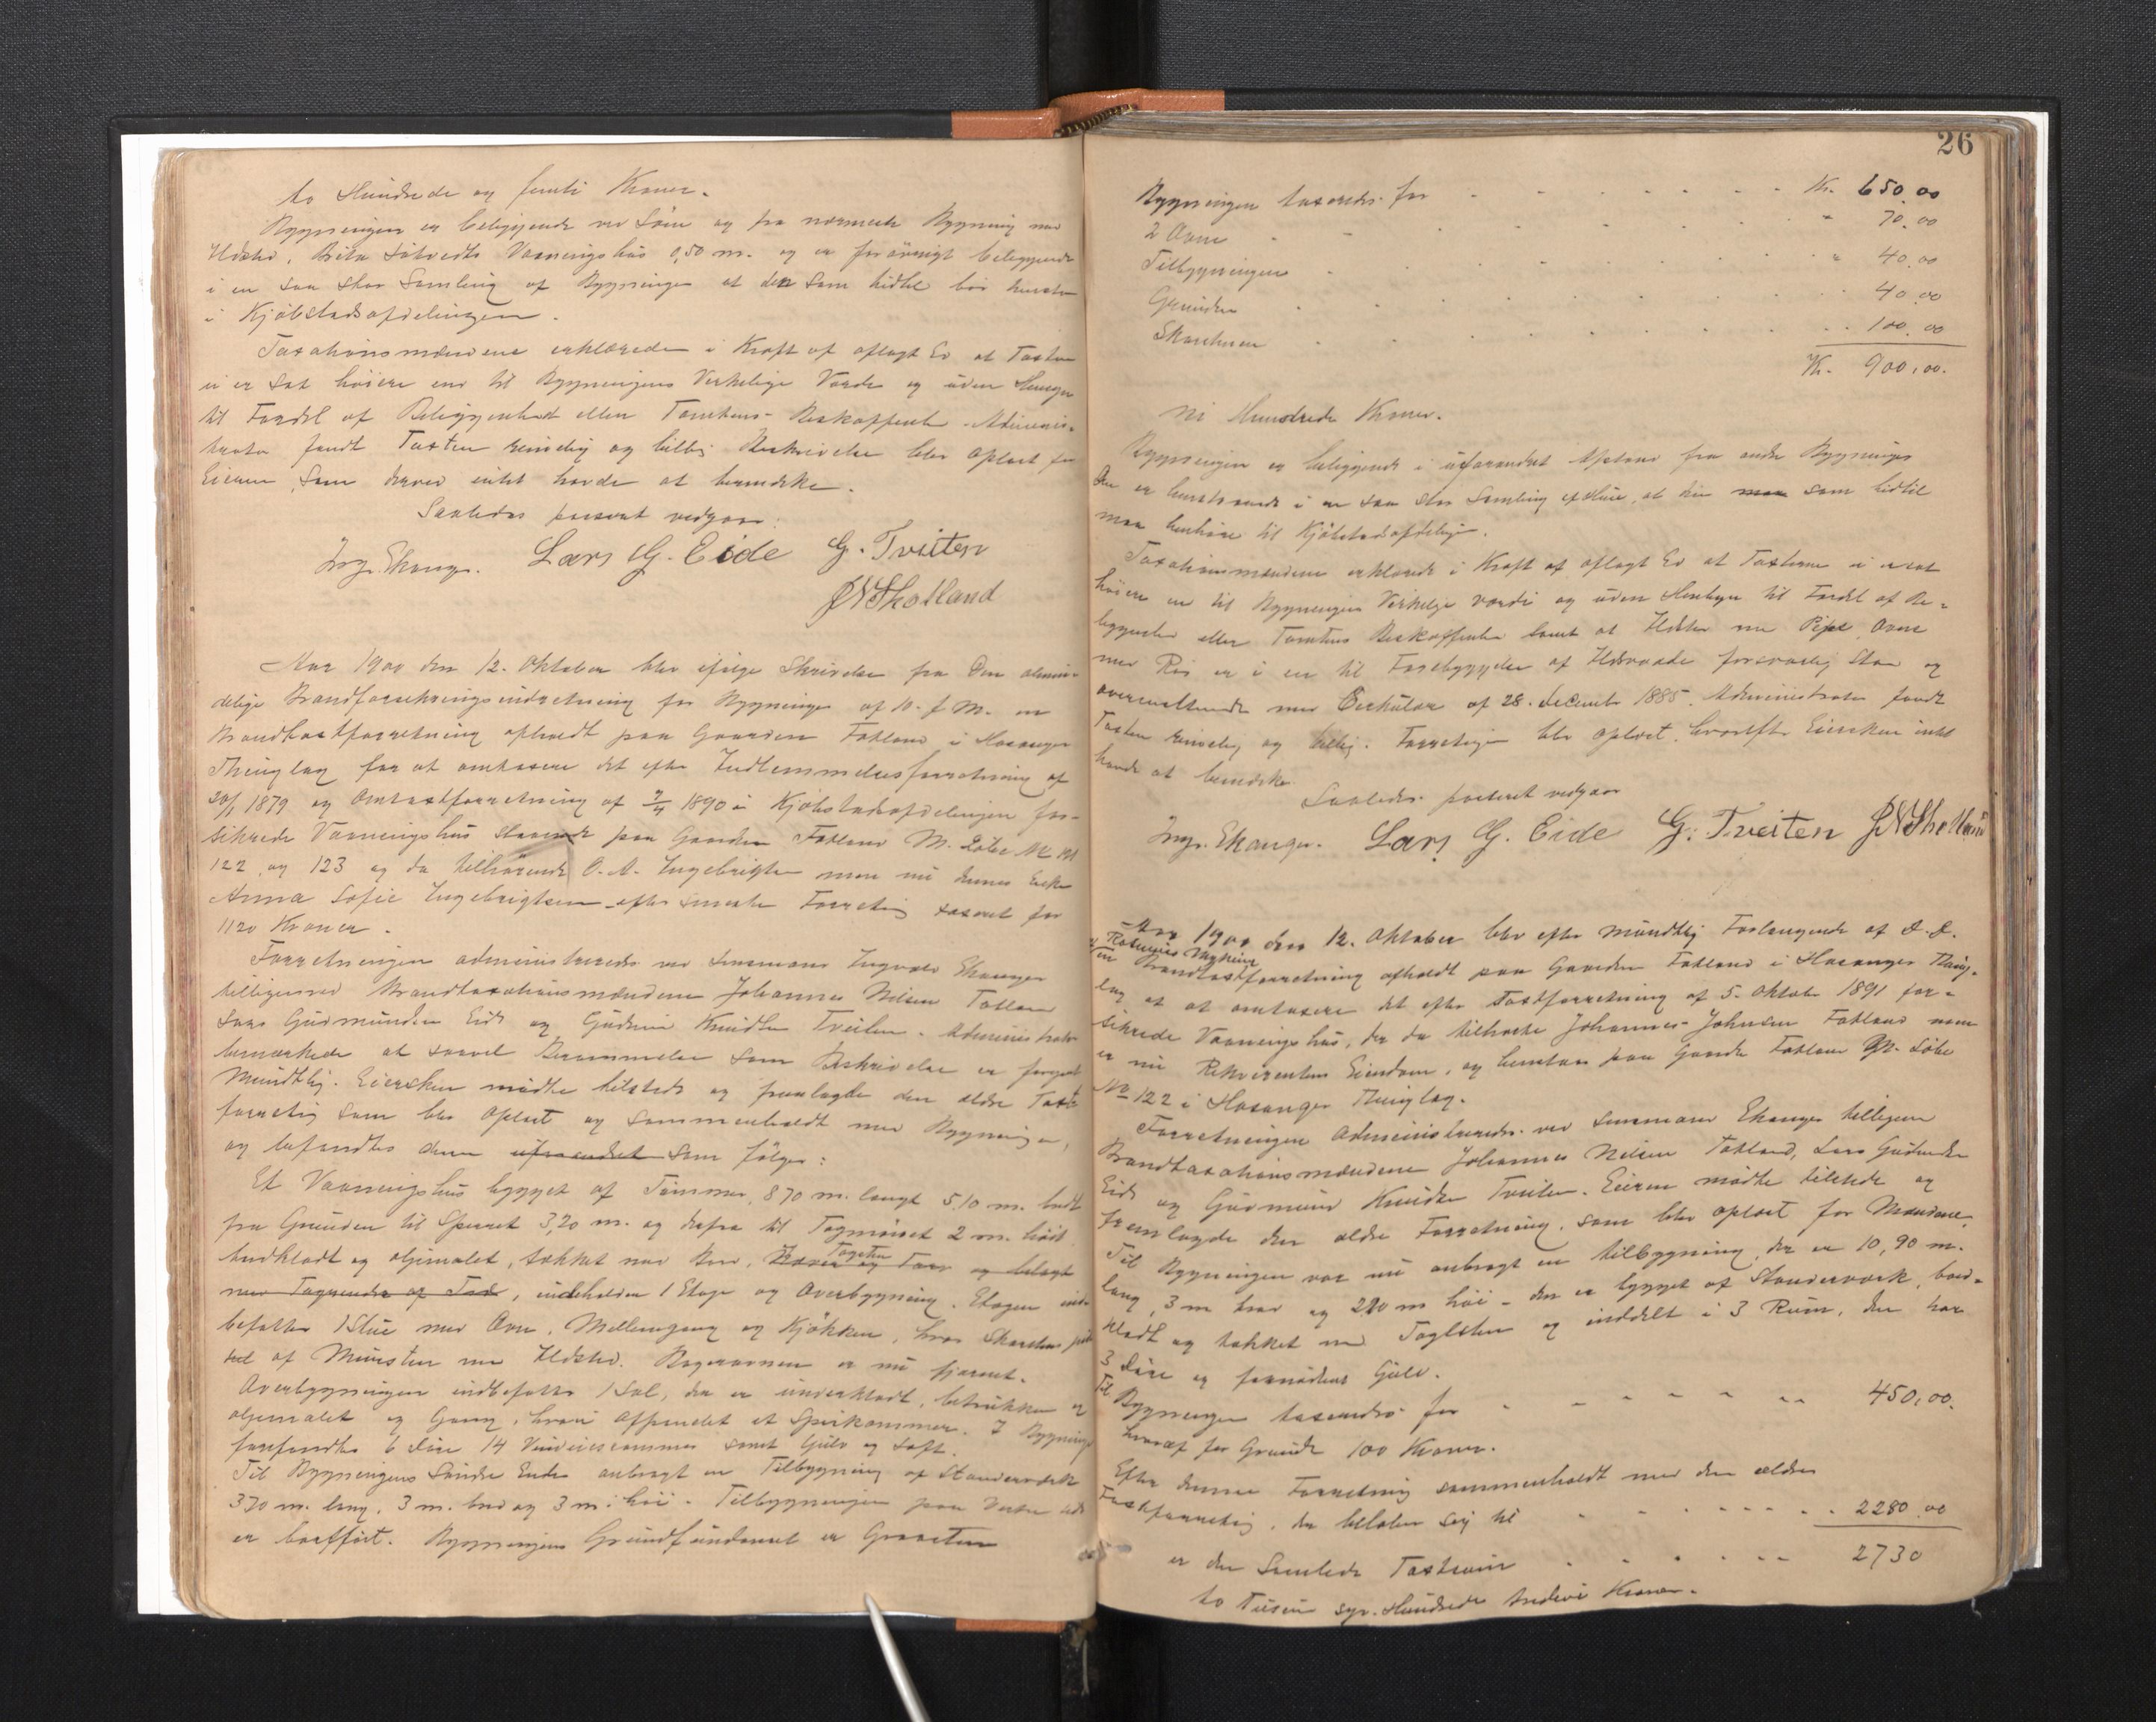 to Hundrede og femti Kroner.
Bygningen er beliggende ved Søen og fra nærmeste Bygning med
Ildsted, Brita Solvedts Vaaningshus 0,50 m. og er forøvrigt beliggende
i en saa stor Samling af Bygninger at den som hidtil bør henstaa
i Kjøbstadsafdelingen.
Taxationsmændene erklærede i Kraft af aflagt Ed at Taxten
ei er sat høiere end til Bygningens Virkelige Værdi og uden Hensyn
til Fordel af Beliggenhed eller Tomtens Beskaffenhed. Adminis-
trator fandt Taxten rimelig og billig. Beskrivelse blev oplæst for
Eieren, som derved intet havde at bemærke.
Saaledes passeret vedgaar:
Ingv. Ekanger. Lars G. Eide G. Tveiten
JNSkotland
Aar 1900 den 12. Oktober blev ifølge Skrivelse fra Den almin-
delige Brandforsikringsindretning for Bygninger af 10. f. M. en
Brandtaxtforretning afholdt paa Gaarden Fotland i Hosanger
Thinglag for at omtaxere det efter Indlemmelsesforretning af
20/1 1879 og Omtaxtforretning af 7/4 1890 i Kjøbstadsafdelingen for-
sikrede Vaaningshus staaende paa Gaarden Fotland M. Løbe No
122 og 123 og da tilhørende O. A. Ingebrigtsen men nu hannes Enke
Anna Sofie Ingebrigtsen efter seneste Forretning taxeret for
1120 Kroner.
Forretningen administreredes ved Lensmand Ingvald Ekanger
tilligemed Brandtaxationsmændene Johannes Nilsen Fotland
Lars Gudmundsen Eide og Gudmund Knudsen Tveiten. Administrator
bemærkede at saavel Berammelse som Beskrivelse er foregaaet
Mundtlig. Eiersken mødte tilstede og fremlagde den ældre Taxt-
forretnig som blev oplæst og sammenholdt med Bygningen,
og befandtes denne uforandret som følger:
Et Vaaningshus bygget af Tømmer, 8,70 m. langt 5,10 m. bredt
fra Grunden til Sperret 3,20 m. og derfra til Tagmønet 2 m. høit
bordklædt og oljemalet, tækket med Tagsten og belagt
med Tagrender af , indeholder 1 Etage og Overbygning. Etagen ind-
befatter 1 Stue med Ovn, Mellemgang og Kjøkken, hvor Skorsten
af Mursten med Ildsted. Bagerovnen er nu fjernet.
Overbygningen indbefatter 1 Sal, der er underklædt, betrukken og
oljemalet og Gang, hvori afpanelet et Spiskammer. I Bygningen
forefindtes 6 Døre 14 Vinduesrammer samt Gulv og Loft.
Til Bygningens Søndre Ende anbragt en Tilbygning af Stenderværk
3,70 m. lang, 3 m. bred og 3 m. høi. Tilbygningen paa Vestre
er bortført. Bygningens Grundfundament er Graasten
26
Bygningen taxeredes for Kr. 650.00
2 Ovne " 70.00
Tilbygningen " 40.00
Grunden 40.00
Skorstenen 100.00
Kr. 900,00.
Ni Hundrede Kroner.
Bygningen er beliggende i uforandret Afstand fra andre Bygninger
Den er henstaaende i en saa stor Samling af Huse, at den som hidtil
maa henhøre til Kjøbstadsafdelingen.
Taxationsmændene erklærede i Kraft af aflagt Ed at Taxterne ei er sat
høiere en til Bygningens Virkelige værdi og uden Hensyn til Fordel af Be-
liggenhed eller Tomtens Beskaffenhed samt at Ildsted med Pipe, Ovne
med Rør er i en til Forebyggelse af Ildsvaade forsvarlig Stand og
overensstemmende med Cirkulær af 28. December 1885. Administrator fandt
Taxten rimelig og billig. Forretningen blev oplæst, hvorefter Eiersken intet
havde at bemærke.
Saaledes passeret vedgaar
Ingv. Ekanger. Lars G. Eide G. Tveiten JNSkotland
Aar 1900 den 12. Oktober blev efter mundtlig Forlangende af
Brandtaxtforretning afholdt paa Gaarden Fotland i Hosanger Thing-
lag at omtaxere det efter Taxtforretning af 5. Oktober 1891 for-
sikrede Vaaningshus, der da tilhørte Johannes Johnsen Fotland men
er nu Rekvirentens Eiendom, og henstaar paa Gaarden Fotland M. Løbe
No 122 i Hosanger Thinglag.
Forretningen administreredes ved Lensmand Ekanger tilligemed
Brandtaxationsmændene Johannes Nilsen Fotland, Lars Gudmundsen
Eide og Gudmund Knudsen Tveiten. Eieren mødte tilstede og
fremlagde den ældre Forretning, som blev oplæst for Mændene.
Til Bygningen var nu anbragt en tilbygning, der er 10,90 m.
lang, 3 m bred og 2,20 m høi - den er bygget af Stenderværk, bord-
klædt og tækket med Taglsten og inddelt i 3 Rum, den har
3 Døre og fornødent Gulv.
Tilbygningen taxeredes for 450,00.
hvoraf for Grunde 100 Kroner.
Efter denne Forretning sammenholdt med den ældre
Taxtforretnig, der beløber sig til 2280.00
er den Samlede Taxtsum 2730
to Tusen syv Hundrede tredive Kroner.